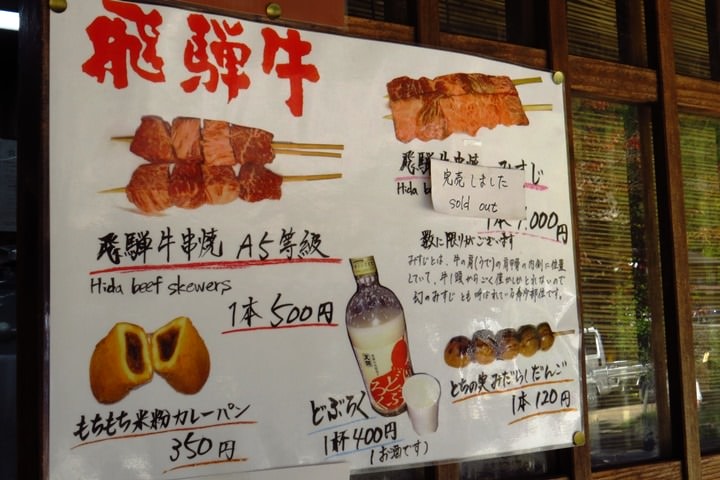 飛騨牛
飛騨牛串焼 A5等級
Hida beef skewers
1本 500円
飛騨牛串焼 みすじ
Hida
完売しました
sold out
1本 1,000円
数に限りがございます
みすじとは、牛の肩(うで)の肩甲骨の内側に位置
していて、牛1頭からごく僅かしかとれないので
幻のみすじ とも呼ばれている希少部位です。
もちもち米粉カレーパン
350円
どぶろく
どぶろく
1杯400円
(お酒です)
とちの実みだらしだんご
1本120円